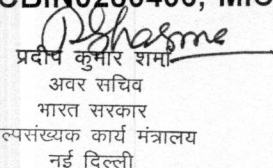 PSharma
प्रदीप कुमार शर्मा
अवर सचिव
भारत सरकार
ल्पसंख्यक कार्य मंत्रालय
नई दिल्ली